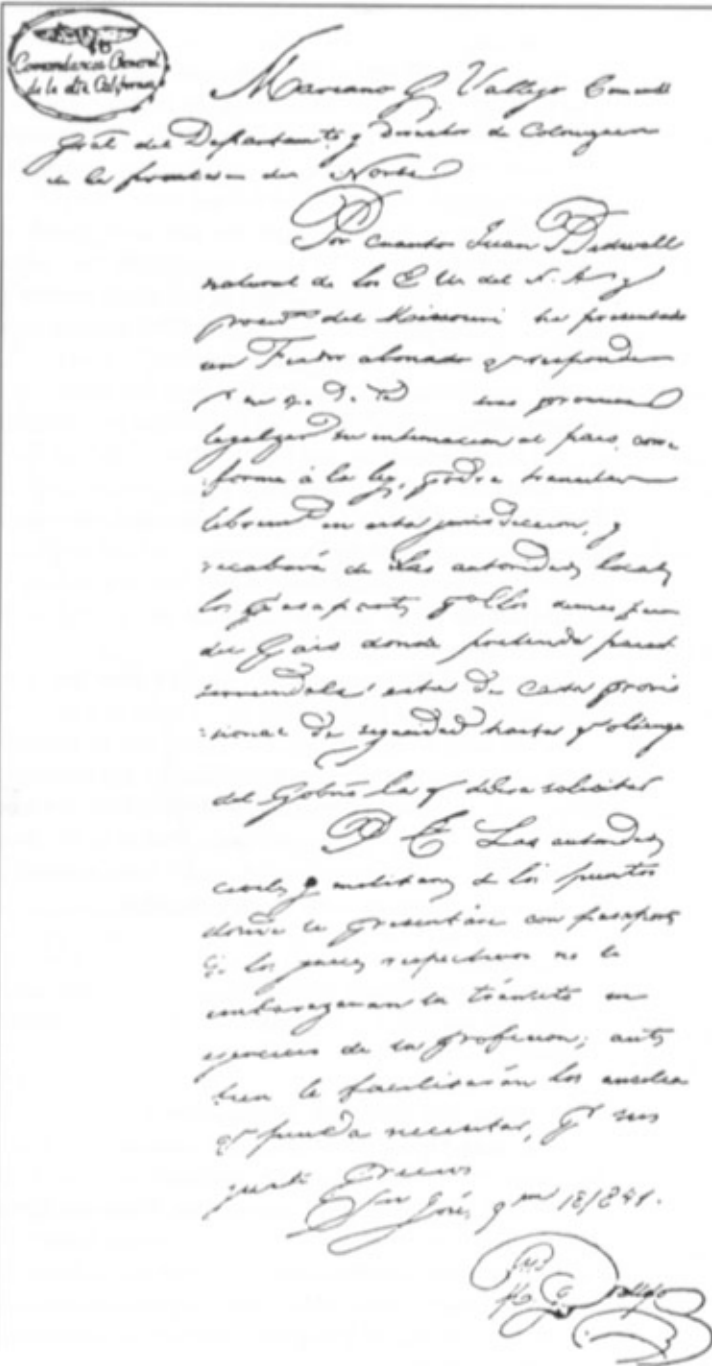 Comandancia General
de la alta California
Mariano G. Vallejo Comand.
Gral. del Departamto. y Director de Colonizacn.
en la frontera del Norte
Por cuanto Juan Bidwell
natural de los E. Us. del N. A. y
proced.te del Misouri ha presentado
un Fiador abonado q. responde
legalizar su internacion al pais, con-
forme á la ley, podrá transitar
librem.te en esta jurisdiccion, y
recabará de las autoridades locales
los pasaportes
del pais donde pretenda pasar
sirviendole esta de carta provi-
sional de seguridad hasta q. obtenga
del Gobno. la q. debera solicitar
P. E. Las autoridades
civiles y militares de los puntos
donde se presentáre con pasaporte
de los jueces respectivos no le
embarazaran su tránsito en
ejercicio de su profesion; antes
bien le facilitarán los auxilios
q. pueda necesitar, p.r sus
justos precios
San José, 9bre 18/841.
M. G. Vallejo